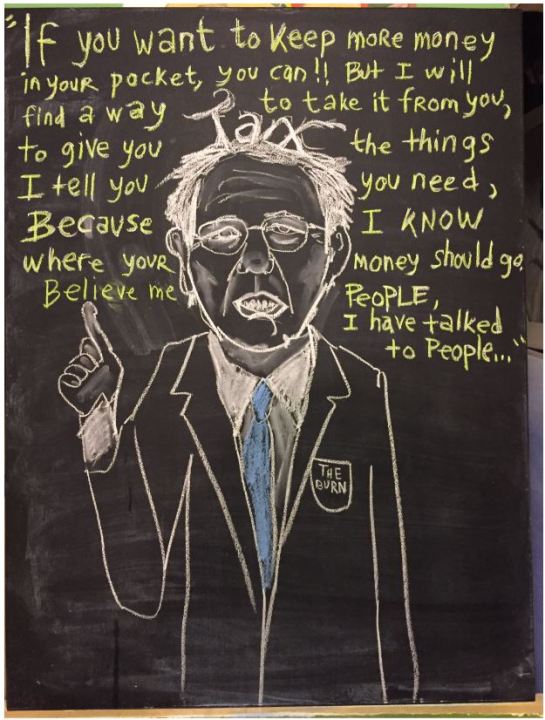 "If you want to Keep more money
in your pocket, you can!! But I will
find a way to take it from you,
Tax
to give you the things
I tell you you need,
Because I KNOW
where your money should go.
Believe me PEOPLE,
I have talked
to People..."
THE
BURN